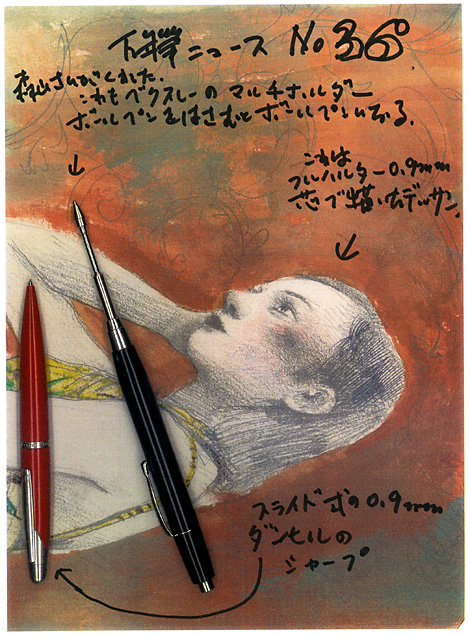 万筆ニュース No 36
森山さんがくれた。
これもベクスレーの マルチホルダー
ボールペンをはさむとボールペンになる。
これは
フルハルター0.9mm
芯で描いたデッサン。
スライド式の0.9mm
ダンヒルの
シャープ